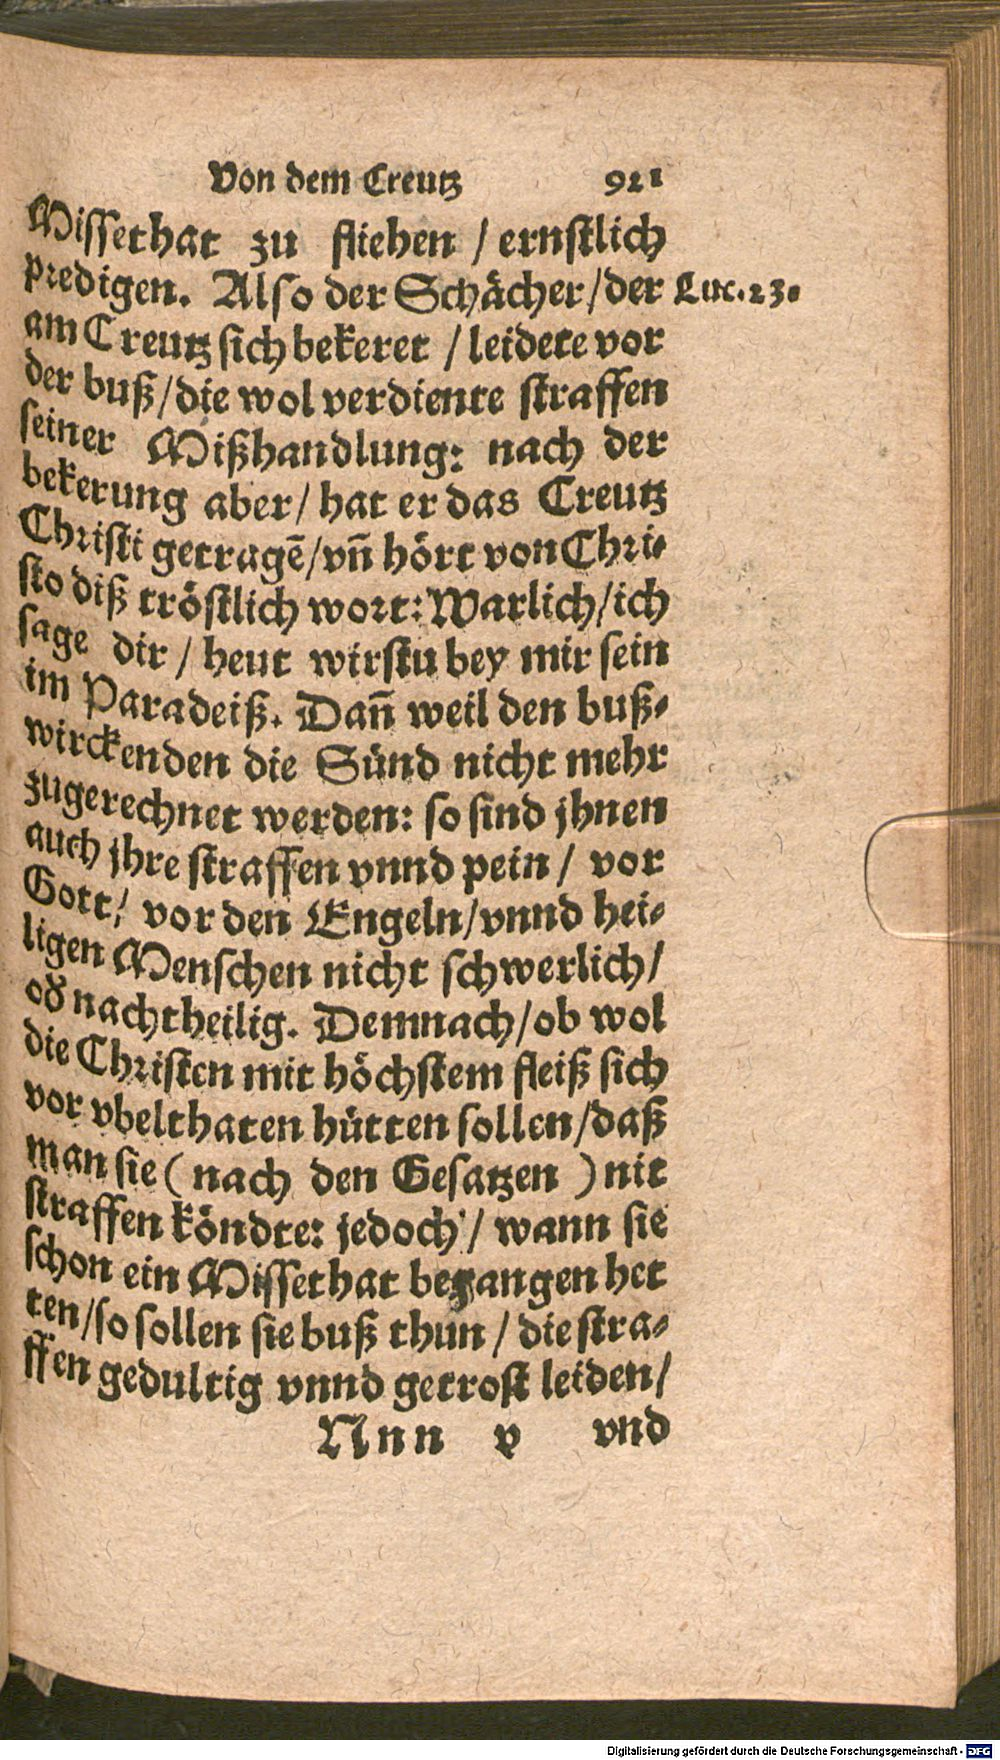 Von dem Creutz 921
Missethat zu fliehen / ernstlich
predigen. Also der Schächer/der Luc.23.
am Creutz sich bekeret / leidete vor
der buß/die wol verdiente straffen
seiner Mißhandlung: nach der
bekerung aber/ hat er das Creutz
Christi getragē/vn̄ hört von Chri-
sto diß tröstlich wort: Warlich/ich
sage dir / heut wirstu bey mir sein
im Paradeiß. Dan̄ weil den buß-
wirckenden die Sünd nicht mehr
zugerechnet werden: so sind jhnen
auch jhre straffen vnnd pein / vor
Gott/ vor den Engeln/vnnd hei-
ligen Menschen nicht schwerlich/
od nachtheilig. Demnach/ob wol
die Christen mit höchstem fleiß sich
vor vbelthaten hütten sollen/daß
man sie ( nach den Gesatzen ) nit
straffen köndte: jedoch / wann sie
schon ein Missethat begangen het
ten/so sollen sie buß thun / die stra-
ffen gedultig vnnd getrost leiden/
Nnn v vnd
Digitalisierung gefördert durch die Deutsche Forschungsgemeinschaft - DFG